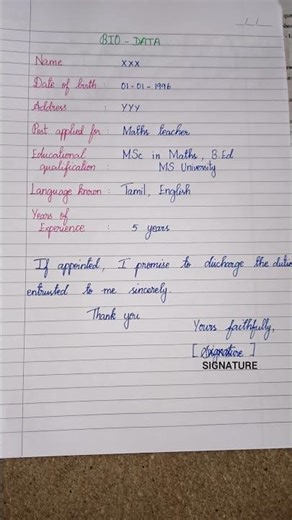 BIO - DATA
Name : XXX
Date of birth : 01-01-1996
Address : YYY
Post applied for : Maths teacher
Educational : MSc in Maths, B.Ed
qualification : MS University
Language known : Tamil, English
Years of
Experience : 5 years
If appointed, I promise to discharge the duties
entrusted to me sincerely.
Thank you
Yours faithfully,
[Signature]
SIGNATURE